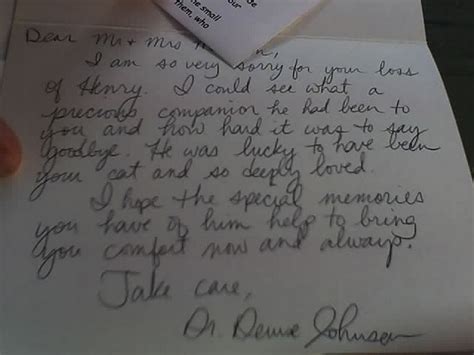 the small
them, who
Dear Mr + Mrs
I am so very sorry for your loss
of Henry. I could see what a
precious companion he had been to
you and how hard it was to say
goodbye. He was lucky to have been
your cat and so deeply loved.
I hope the special memories
you have of him help to bring
you comfort now and always.
Take care,
Dr. Denise Johnson